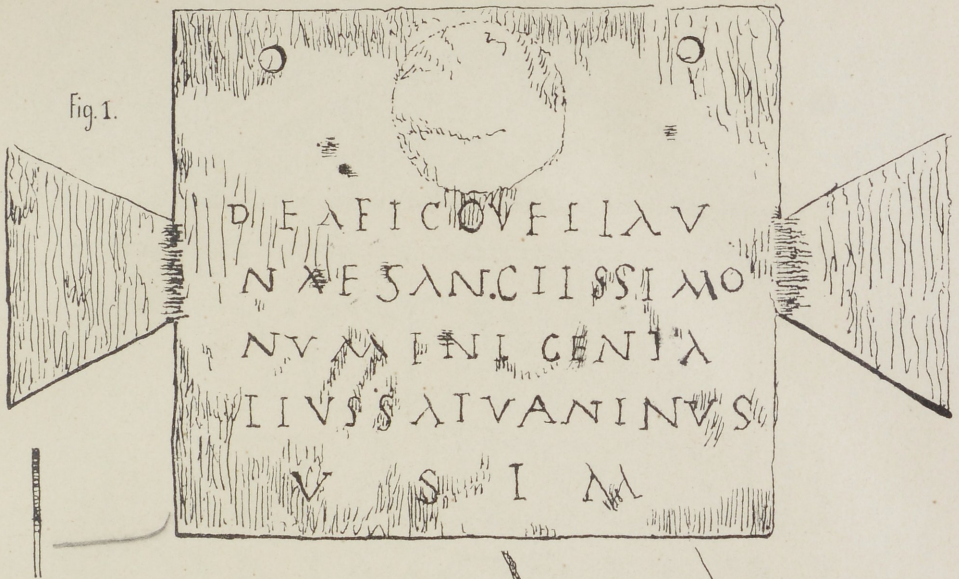 Fig. 1.
DEAFICOVFIIAV
NAESANCIISSIMO
NVMINICENIA
IIVSSATVANINVS
V S I M